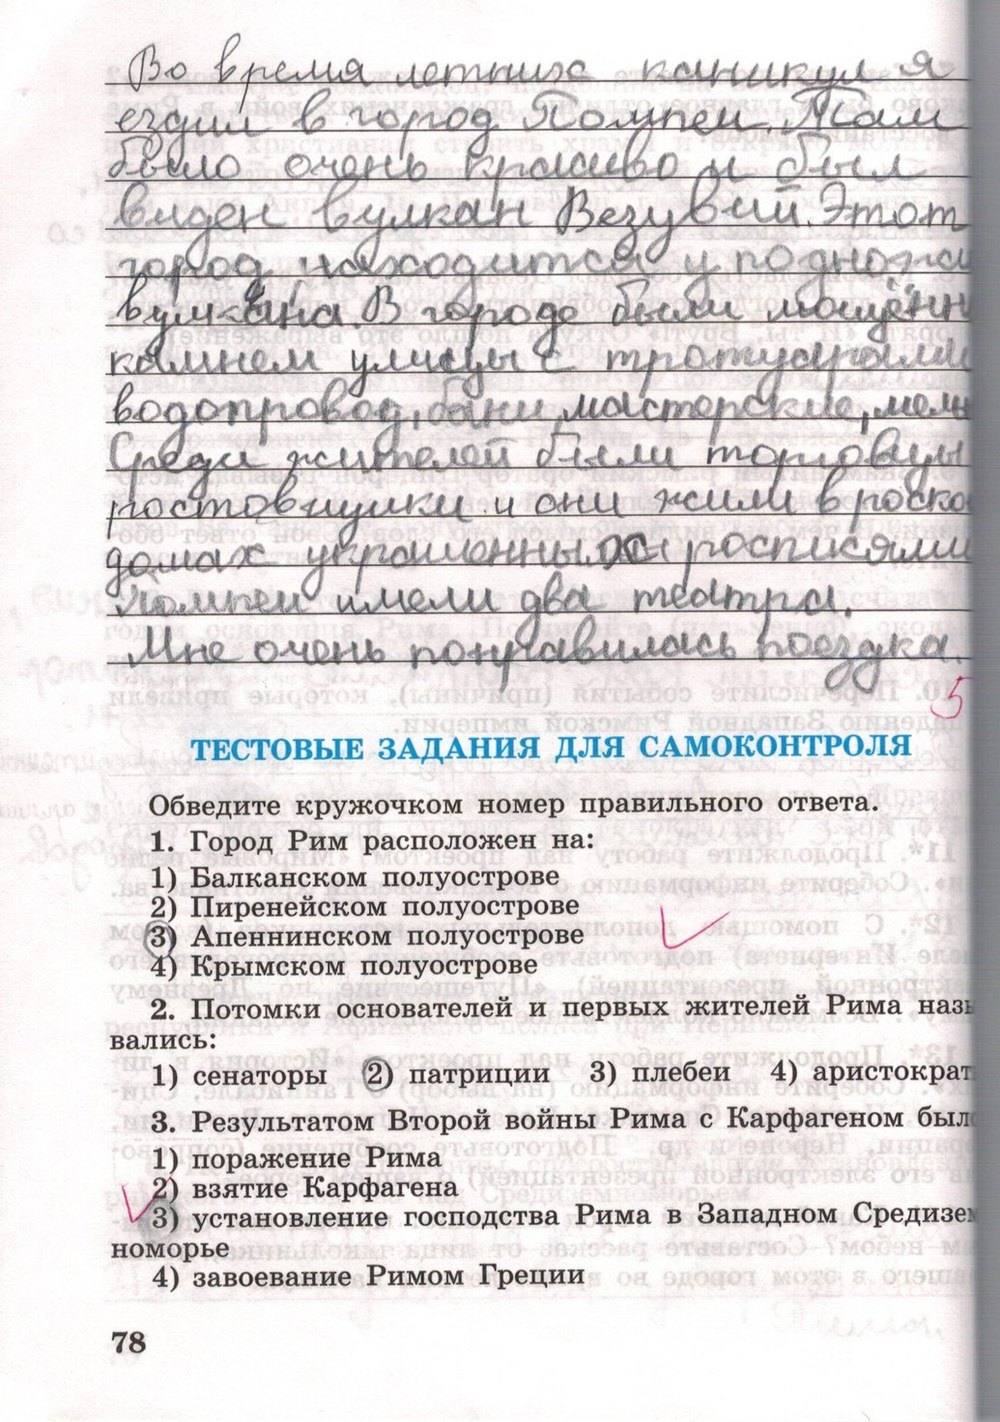 Во время летних каникул я
ездил в город Помпеи. Там
было очень красиво и был
виден вулкан Везувий. Этот
город находится у подножи
вулкана. В городе были мощённ
камнем улицы с тротуарами
водопровод, бани, мастерские, мель
Среди жителей были торговцы
ростовщики и они жили в роско
домах украшенных росписями
Помпеи имели два театра.
Мне очень понравилась поездка.
5
ТЕСТОВЫЕ ЗАДАНИЯ ДЛЯ САМОКОНТРОЛЯ
Обведите кружочком номер правильного ответа.
1. Город Рим расположен на:
1) Балканском полуострове
2) Пиренейском полуострове
3) Апеннинском полуострове
4) Крымском полуострове
2. Потомки основателей и первых жителей Рима назы
вались:
1) сенаторы 2) патриции 3) плебеи 4) аристократ
3. Результатом Второй войны Рима с Карфагеном был
1) поражение Рима
2) взятие Карфагена
3) установление господства Рима в Западном Средизем
номорье
4) завоевание Римом Греции
78